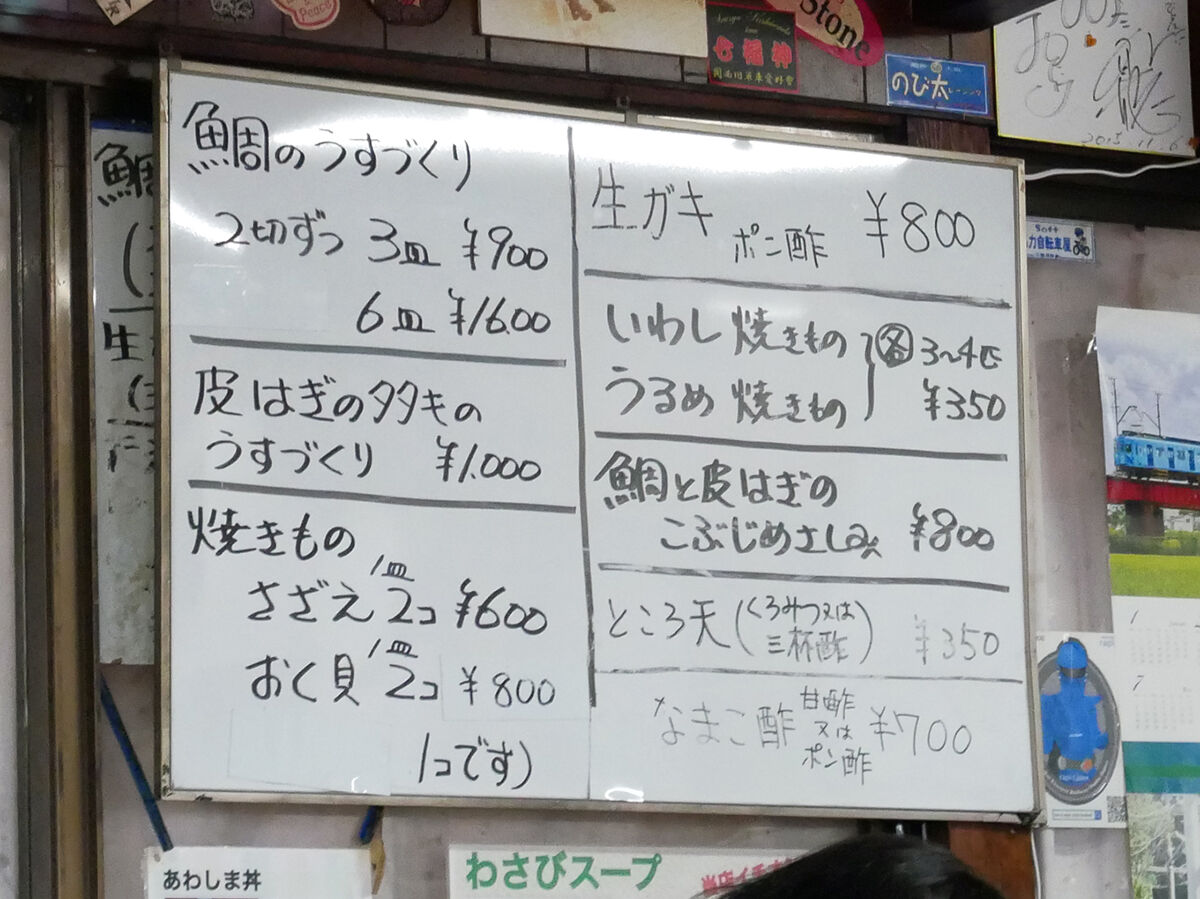 鯛のうすづくり
2切ずつ 3皿 ¥900
6皿 ¥1600
皮はぎのタタキの
うすづくり ¥1.000
焼きもの
さざえ 1皿 2コ ¥600
おく貝 1皿 2コ ¥800
1コです)
生ガキ ポン酢 ¥800
いわし 焼きもの
うるめ 焼きもの
各 3〜4匹
¥350
鯛と皮はぎの
こぶじめさしみ ¥800
ところ天 (くろみつ又は
三杯酢) ¥350
なまこ酢 甘酢
又は
ポン酢 ¥700
Peace
七福神
Stone
のび太
レーシング
2015.11.6
力自転車屋
鯛
生
あわしま丼
わさびスープ
1
7